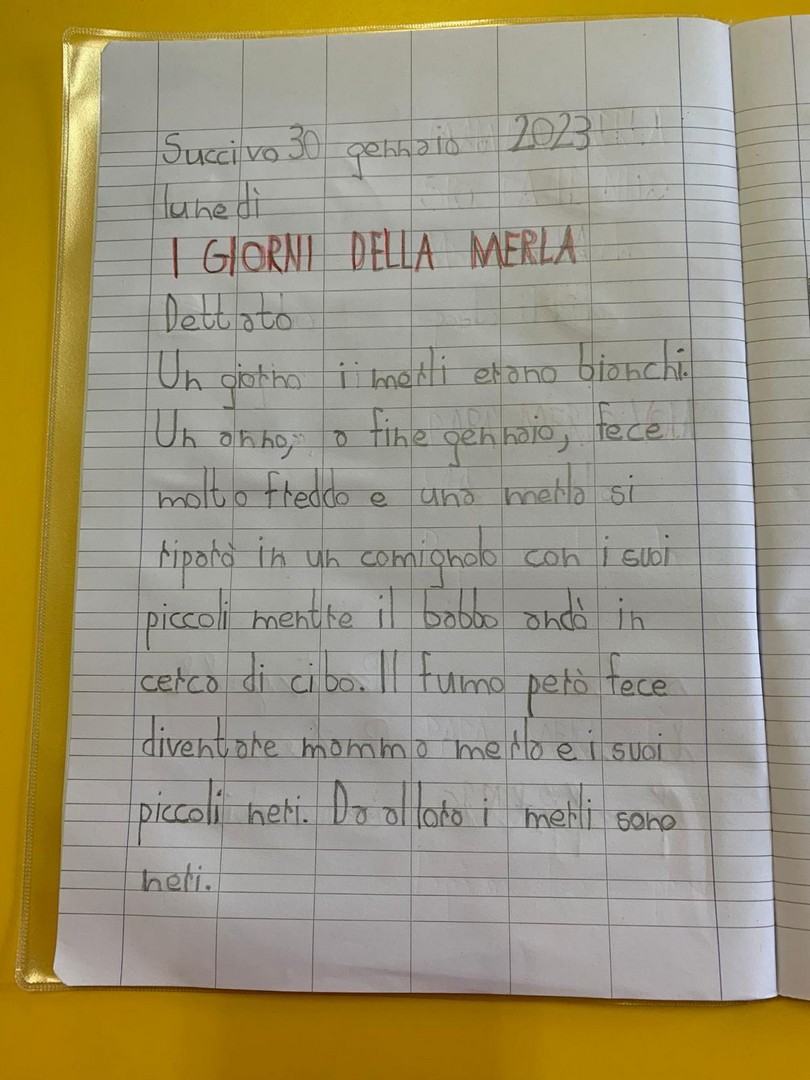 Succivo 30 gennaio 2023
lunedì
I GIORNI DELLA MERLA
Dettato
Un giorno i merli erano bianchi.
Un anno, a fine gennaio, fece
molto freddo e una merla si
riparò in un comignolo con i suoi
piccoli mentre il babbo andò in
cerca di cibo. Il fumo però fece
diventare mamma merla e i suoi
piccoli neri. Da allora i merli sono
neri.